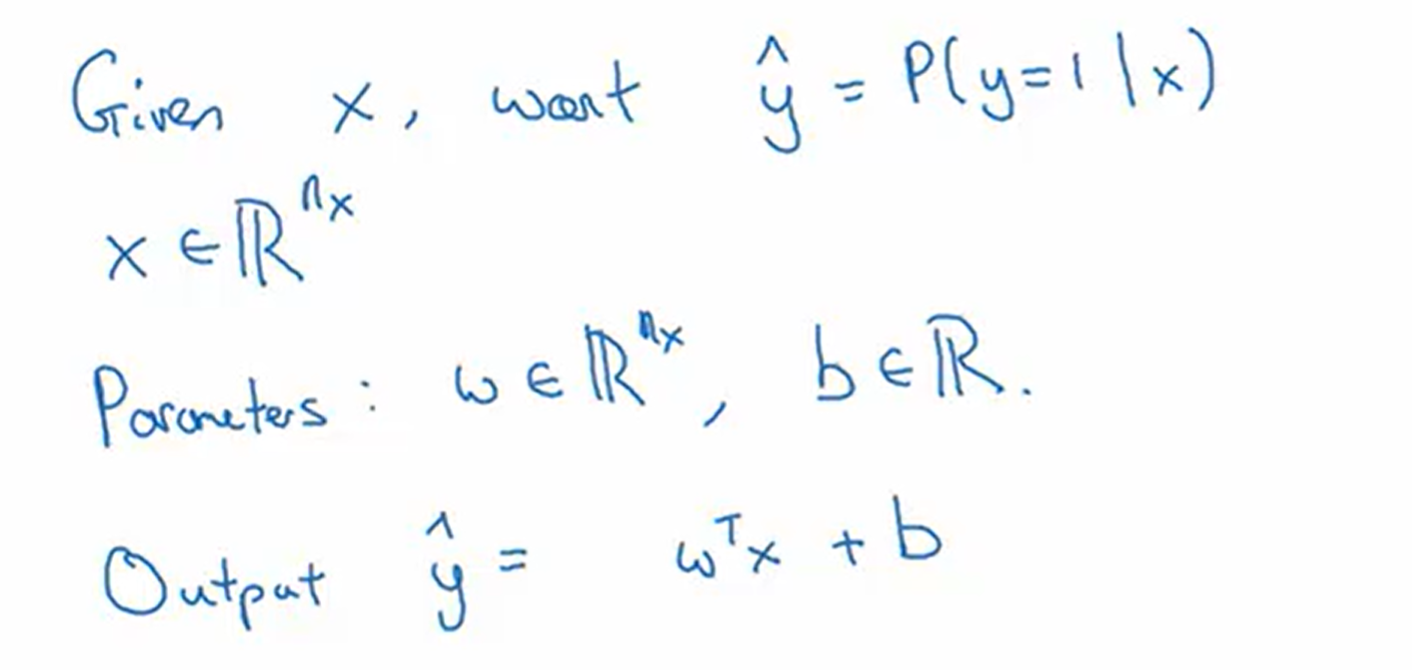 Given x, want ŷ = P(y=1 | x)
x ∈ ℝⁿˣ
Parameters: w ∈ ℝⁿˣ, b ∈ ℝ.
Output ŷ = wᵀx + b